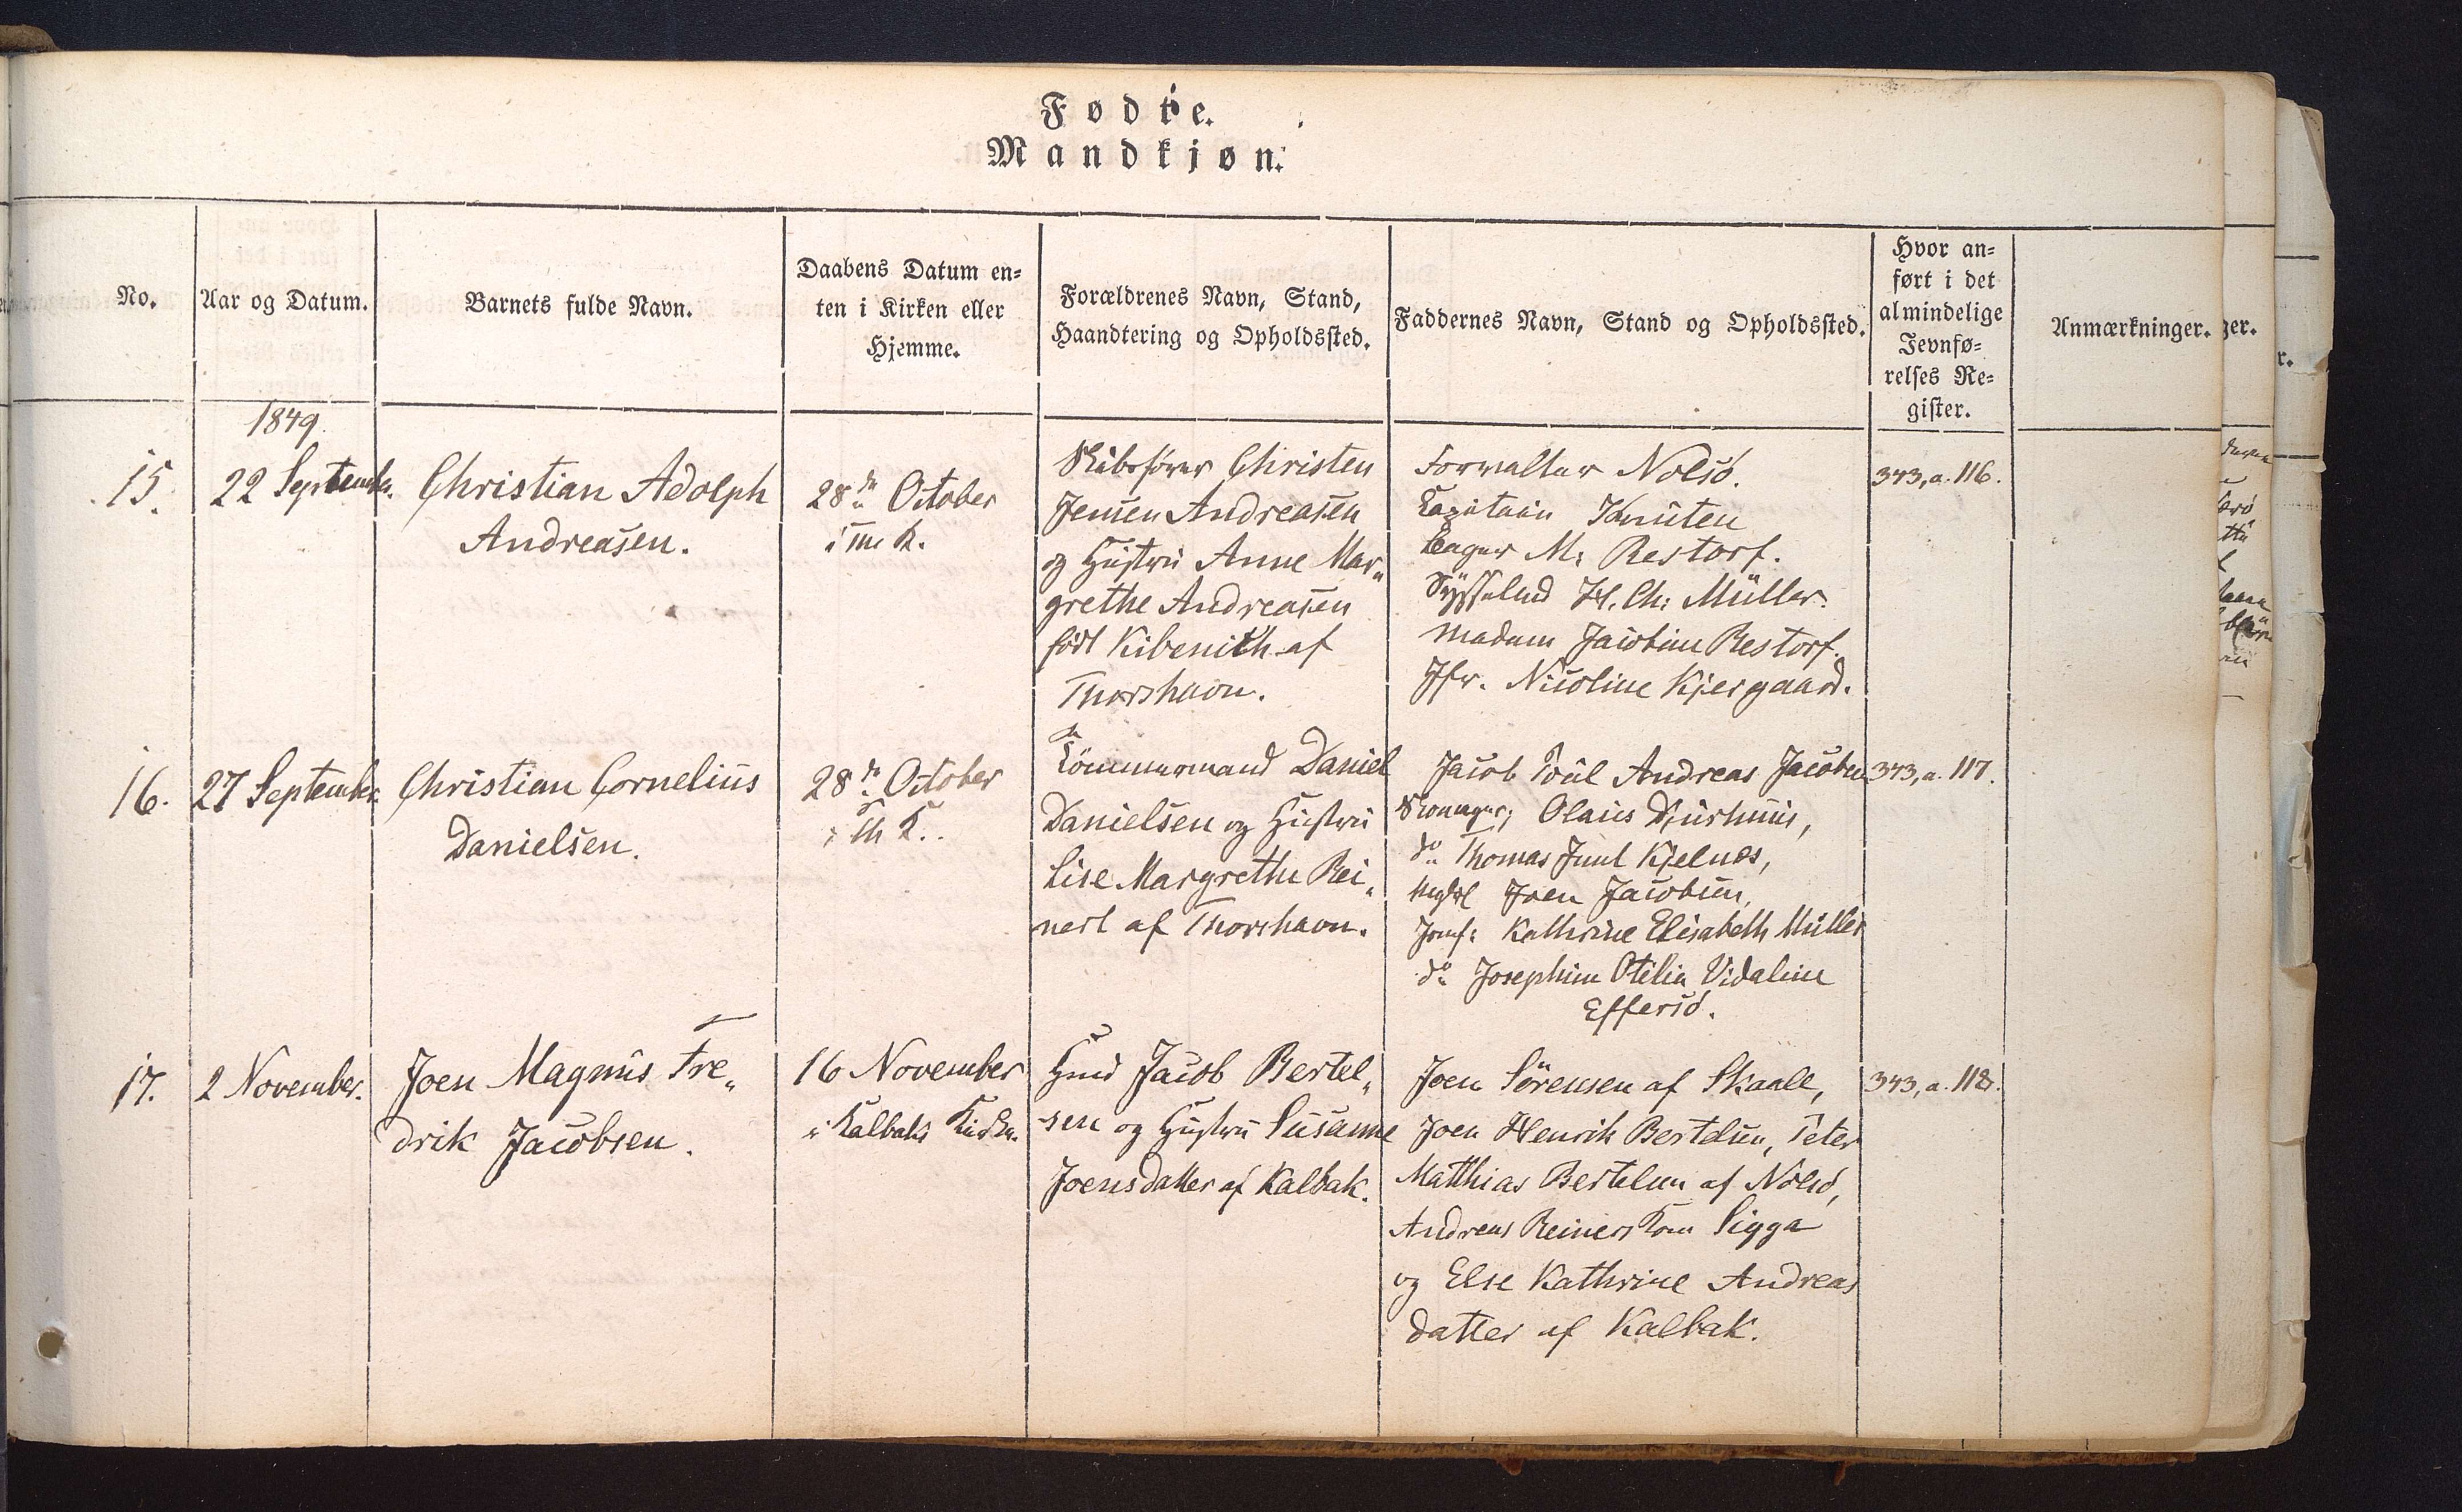 Fødte.
Mandkjøn.
No.
Aar og Datum.
Barnets fulde Navn.
Daabens Datum en-
ten i Kirken eller
Hjemme.
Forældrenes Navn, Stand,
Haandtering og Opholdssted.
Faddernes Navn, Stand og Opholdssted.
Hvor an-
ført i det
almindelige
Jevnfø-
relses Re-
gister.
Anmærkninger.
1849.
15.
22 September.
Christian Adolph
Andreasen.
28de October
i K.
Skibsfører Christen
Jensen Andreasen
og Hustru Anne Mar„
grethe Andreasen
født Kibenich af
Thorshavn.
Forvalter Nolsö.
Capitain Knuten
Bager M. Restorf.
Sysselmd H. Ch: Müller.
Madam Jacobine Restorf.
Jfr. Nicoline Kjergaard.
343, a. 116.
16.
27 September.
Christian Cornelius
Danielsen.
28de October
i Th K..
Tömmermand Daniel
Danielsen og Hustru
Lise Margrethe Rei„
nert af Thorshavn.
Jacob Poul Andreas Jacobsen
Skomager; Olaus Djurhuus,
do Thomas Juul Kjelnes,
Joen Jacobsen,
Jomf: Kathrine Elisabeth Müller
do Josephine Otilia Vidaline
Effersö.
343, a. 117.
17.
2 November.
Joen Magnus Fre„
drik Jacobsen.
16 November
i Kalbaks Kirke.
Jacob Bertel„
sen og Hustru Susanne
Joensdatter af Kalbak.
Joen Sörensen af Skaale,
Joen Henrik Bertelsen, Peter
Matthias Bertelsen af Nolsö,
Andreas Reiners Kone Sigga
og Else Kathrine Andreas
datter af Kalbak.
343, a. 118.